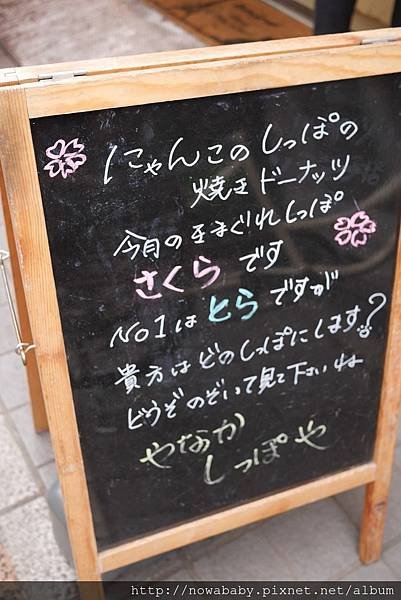 にゃんこのしっぽの
焼きドーナッツ
今月のきまぐれしっぽ
さくらです
No1はとらですが
貴方はどのしっぽにします?
どうぞのぞいて見て下さいね
やなか
しっぽや
http://nowababy.pixnet.net/album